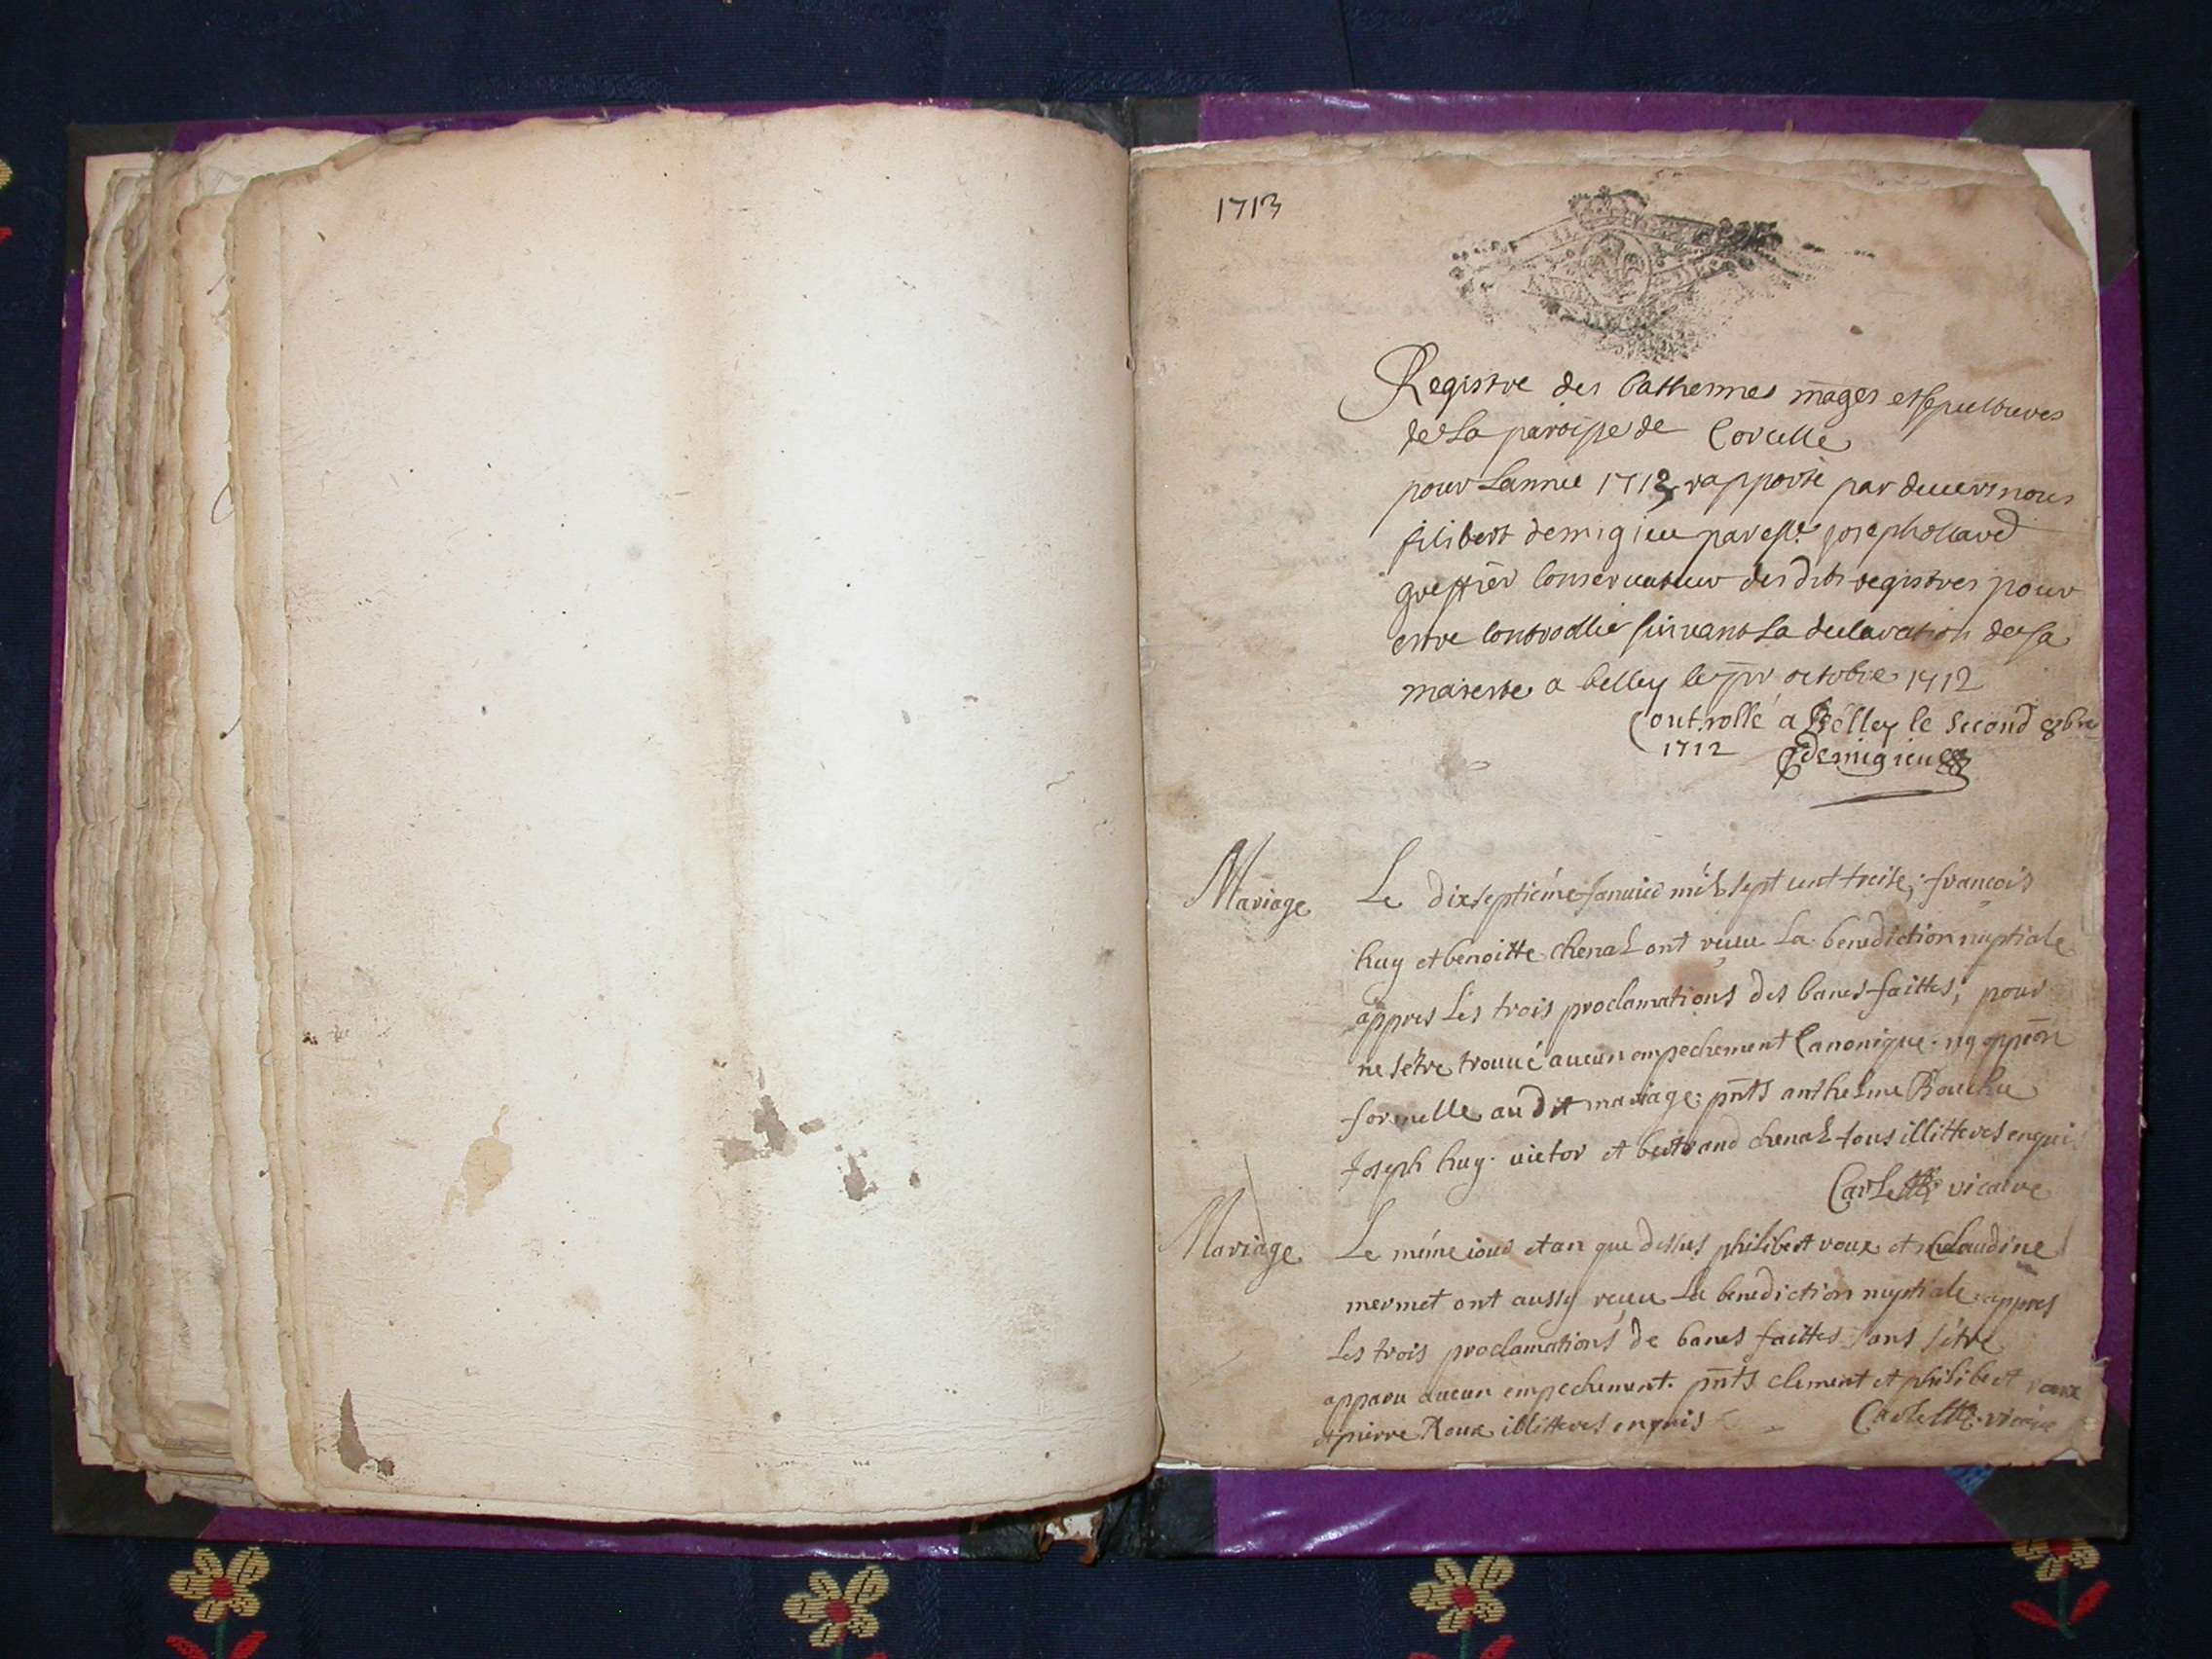 1713
Registre des bathesmes mages et sepultures
de La paroisse de Corcelle
pour Lannee 1713 rapporté par devers nous
filibert demigieu par esle Joseph
greffier Conservateur des dits registres pour
estre controllé suivant La declaration de sa
majeste a belley le pr octobre 1712
Controllé a Belley le second 8bre
1712 demigieu
Mariage Le dixseptiéme Janvier mil sept cent treise, françois
huy et benoitte chenal ont reçeu La benediction nuptiale
appres Les trois proclamations des bancs faittes, pour
ne sétre trouué aucun empechement Canonique ny oppoōn
formelle au dit mariage: pnts anthelme Bouchu
Joseph huy victor et bertrand chenal tous illitteres enquis
Carlette vicaire
Mariage Le méme iour et an que dessus philibert roux et Claudine
mermet ont aussy reçeu La benediction nuptiale appres
Les trois proclamations de bancs faittes sans sétre
apparu aucun empechement. pnts clement et philibert roux
et pierre Roux illitteres enquis Carlette vicaire